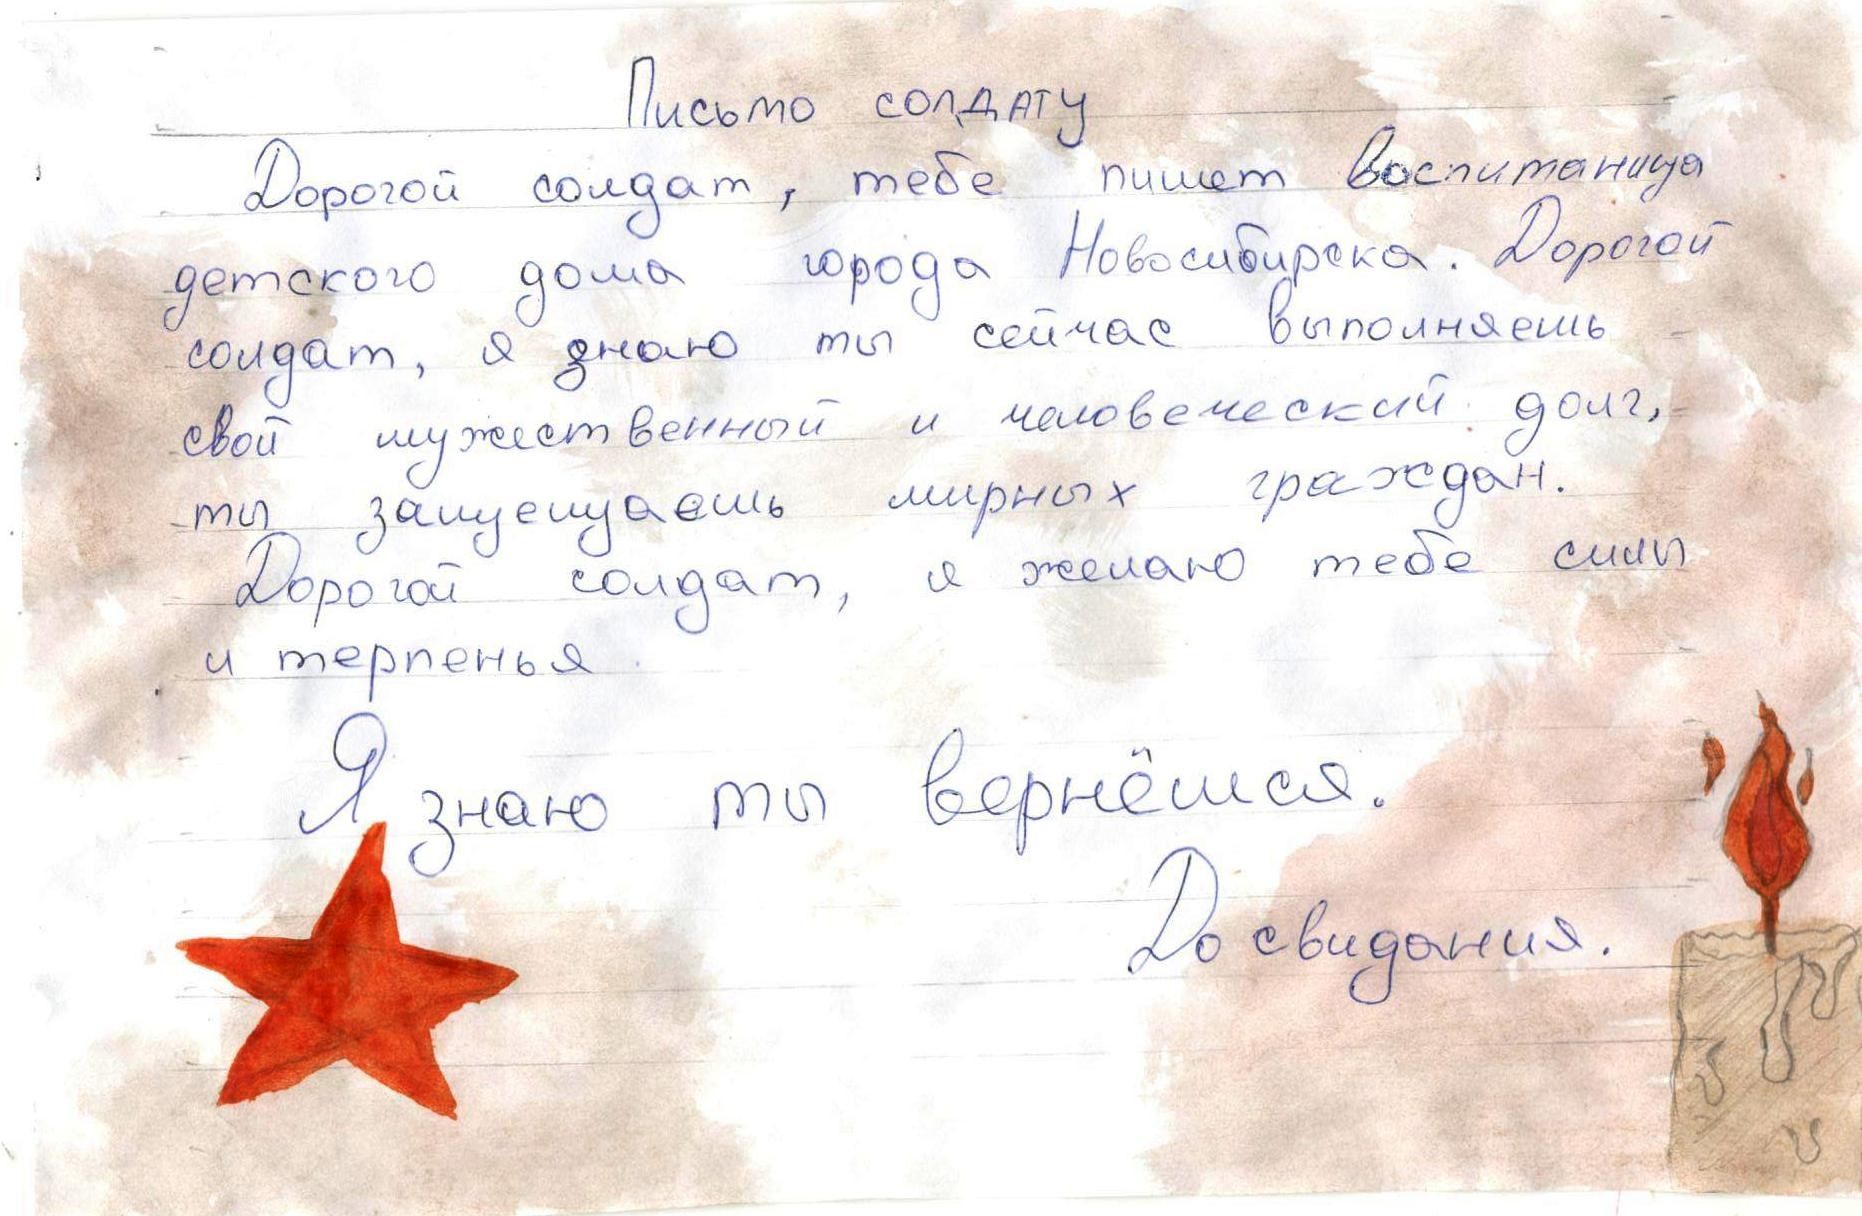 Письмо солдату
Дорогой солдат, тебе пишет воспитаница
детского дома города Новосибирска. Дорогой
солдат, я знаю ты сейчас выполняешь
свой мужественный и человеческий долг,
ты защещаешь мирных граждан.
Дорогой солдат, я желаю тебе силы
и терпенья.
Я знаю ты вернёшся.
До свидания.